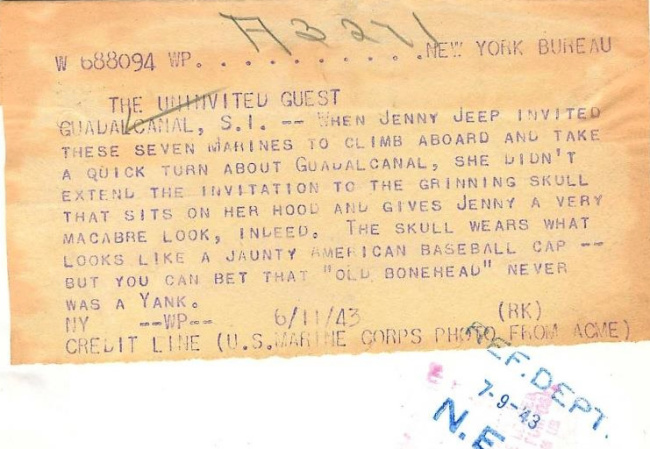 A3271
W 688094 WP. . . . . . . . . . .NEW YORK BUREAU
THE UNINVITED GUEST
GUADALCANAL, S.I. -- WHEN JENNY JEEP INVITED
THESE SEVEN MARINES TO CLIMB ABOARD AND TAKE
A QUICK TURN ABOUT GUADALCANAL, SHE DIDN'T
EXTEND THE INVITATION TO THE GRINNING SKULL
THAT SITS ON HER HOOD AND GIVES JENNY A VERY
MACABRE LOOK, INDEED. THE SKULL WEARS WHAT
LOOKS LIKE A JAUNTY AMERICAN BASEBALL CAP --
BUT YOU CAN BET THAT "OLD BONEHEAD" NEVER
WAS A YANK.
NY --WP-- 6/11/43 (RK)
CREDIT LINE (U.S.MARINE CORPS PHOTO FROM ACME)
REF.DEPT.
7-9-43
N.E